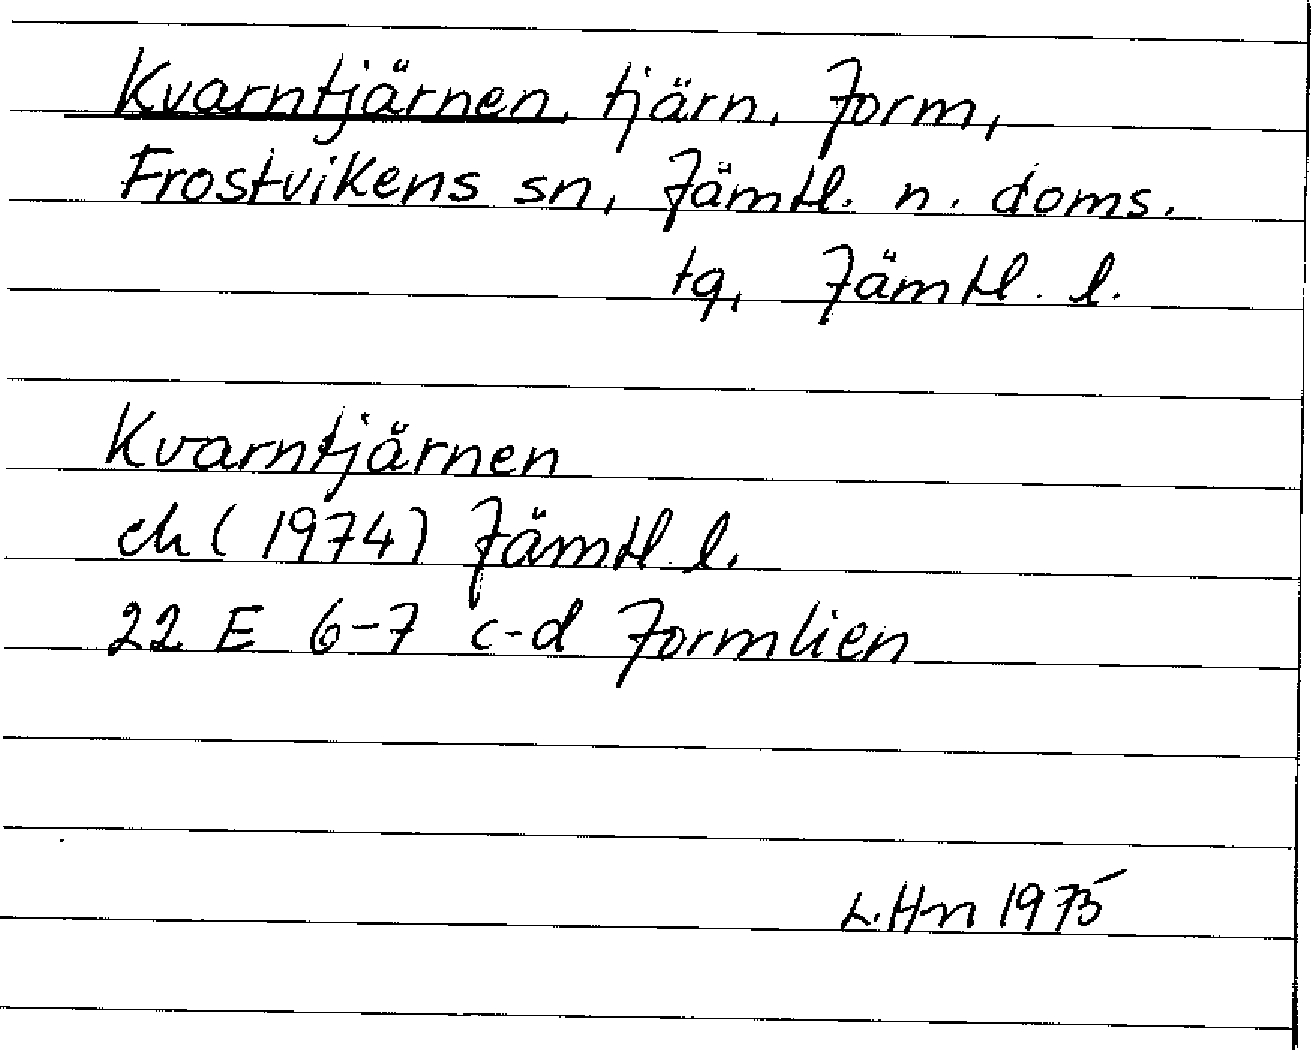 Kvarntjärnen, tjärn, Jorm,
Frostvikens sn, Jämtl. n. doms.
tg, Jämtl. l.
Kvarntjärnen
ek (1974) Jämtl. l.
22 E 6-7 c-d Jormlien
L. Hn 1975